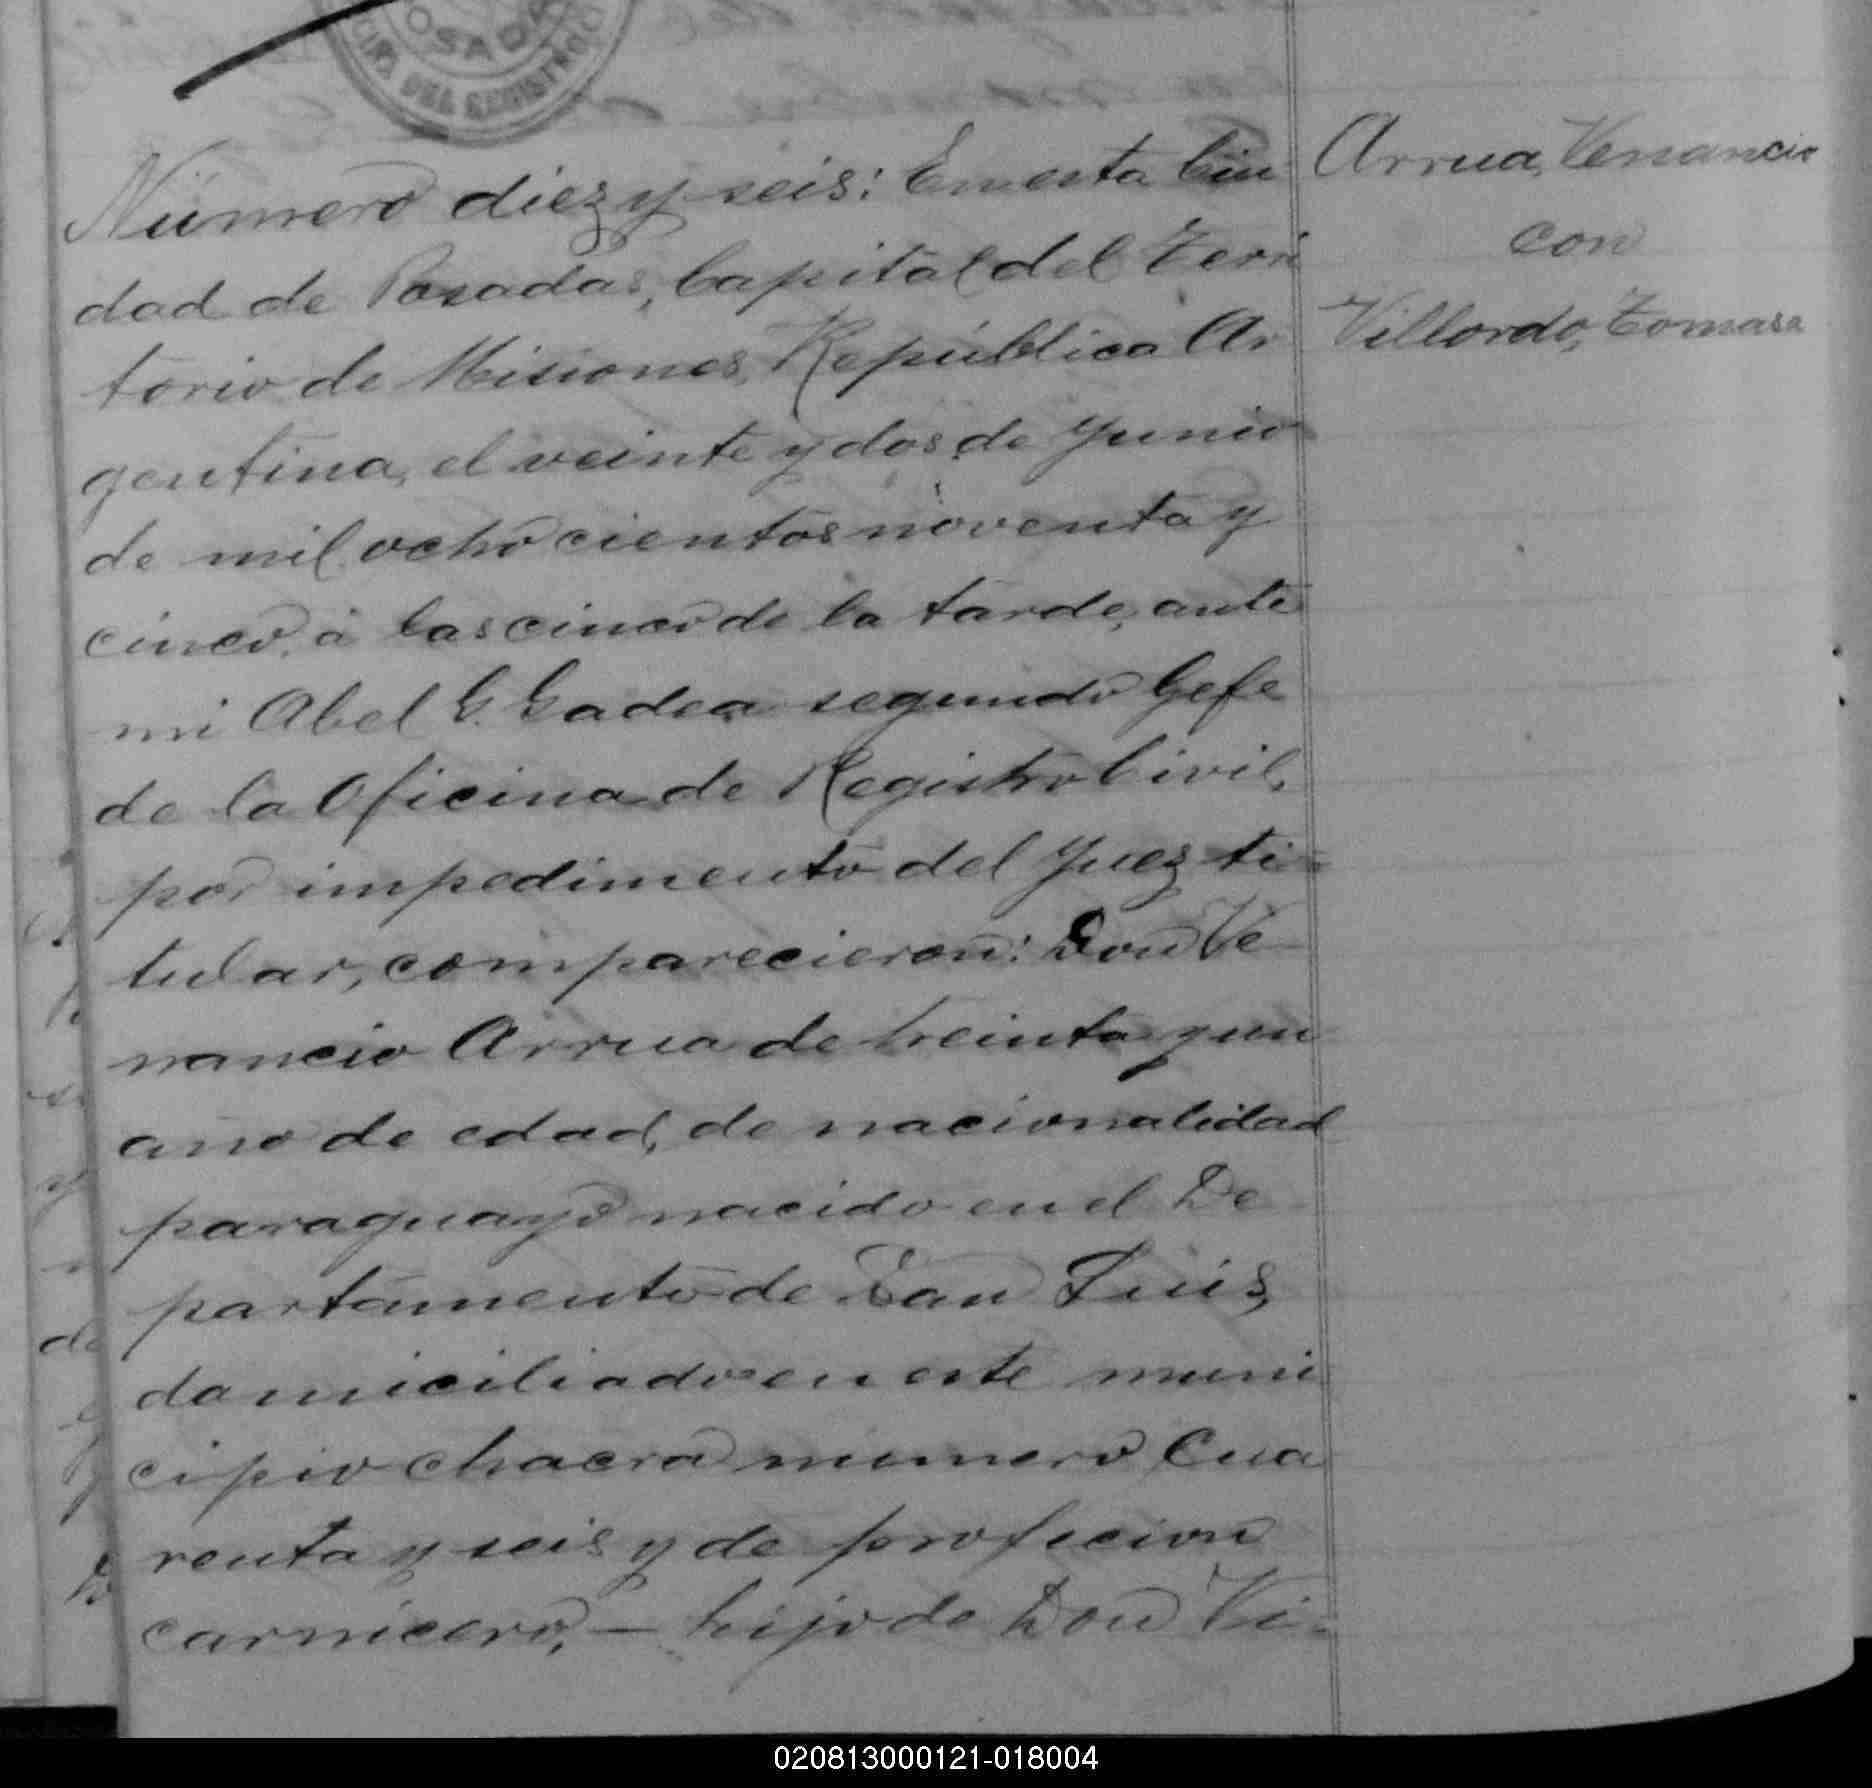 POSADAS
DEL REGISTRO
Número diez y seis: En esta Ciu
dad de Posadas, Capital del Terri
torio de Misiones, República Ar
gentina, el veinte y dos de Junio
de mil ochocientos noventa y
cinco, á las cinco de la tarde, ante
mi Abel G. Gadea segundo Gefe
de la Oficina de Registro Civil,
por impedimento del Juez ti-
tular, comparecieron: Don Ve
nancio Arrua de treinta y un
año de edad, de nacionalidad
paraguayo nacido en el De
partamento de San Luis,
domiciliado en este muni
cipio chacra numero Cua
renta y seis y de profecion
carnicero, — hijo de Don Vi-
Arrua, Venancio
con
Villordo, Tomasa
020813000121-018004